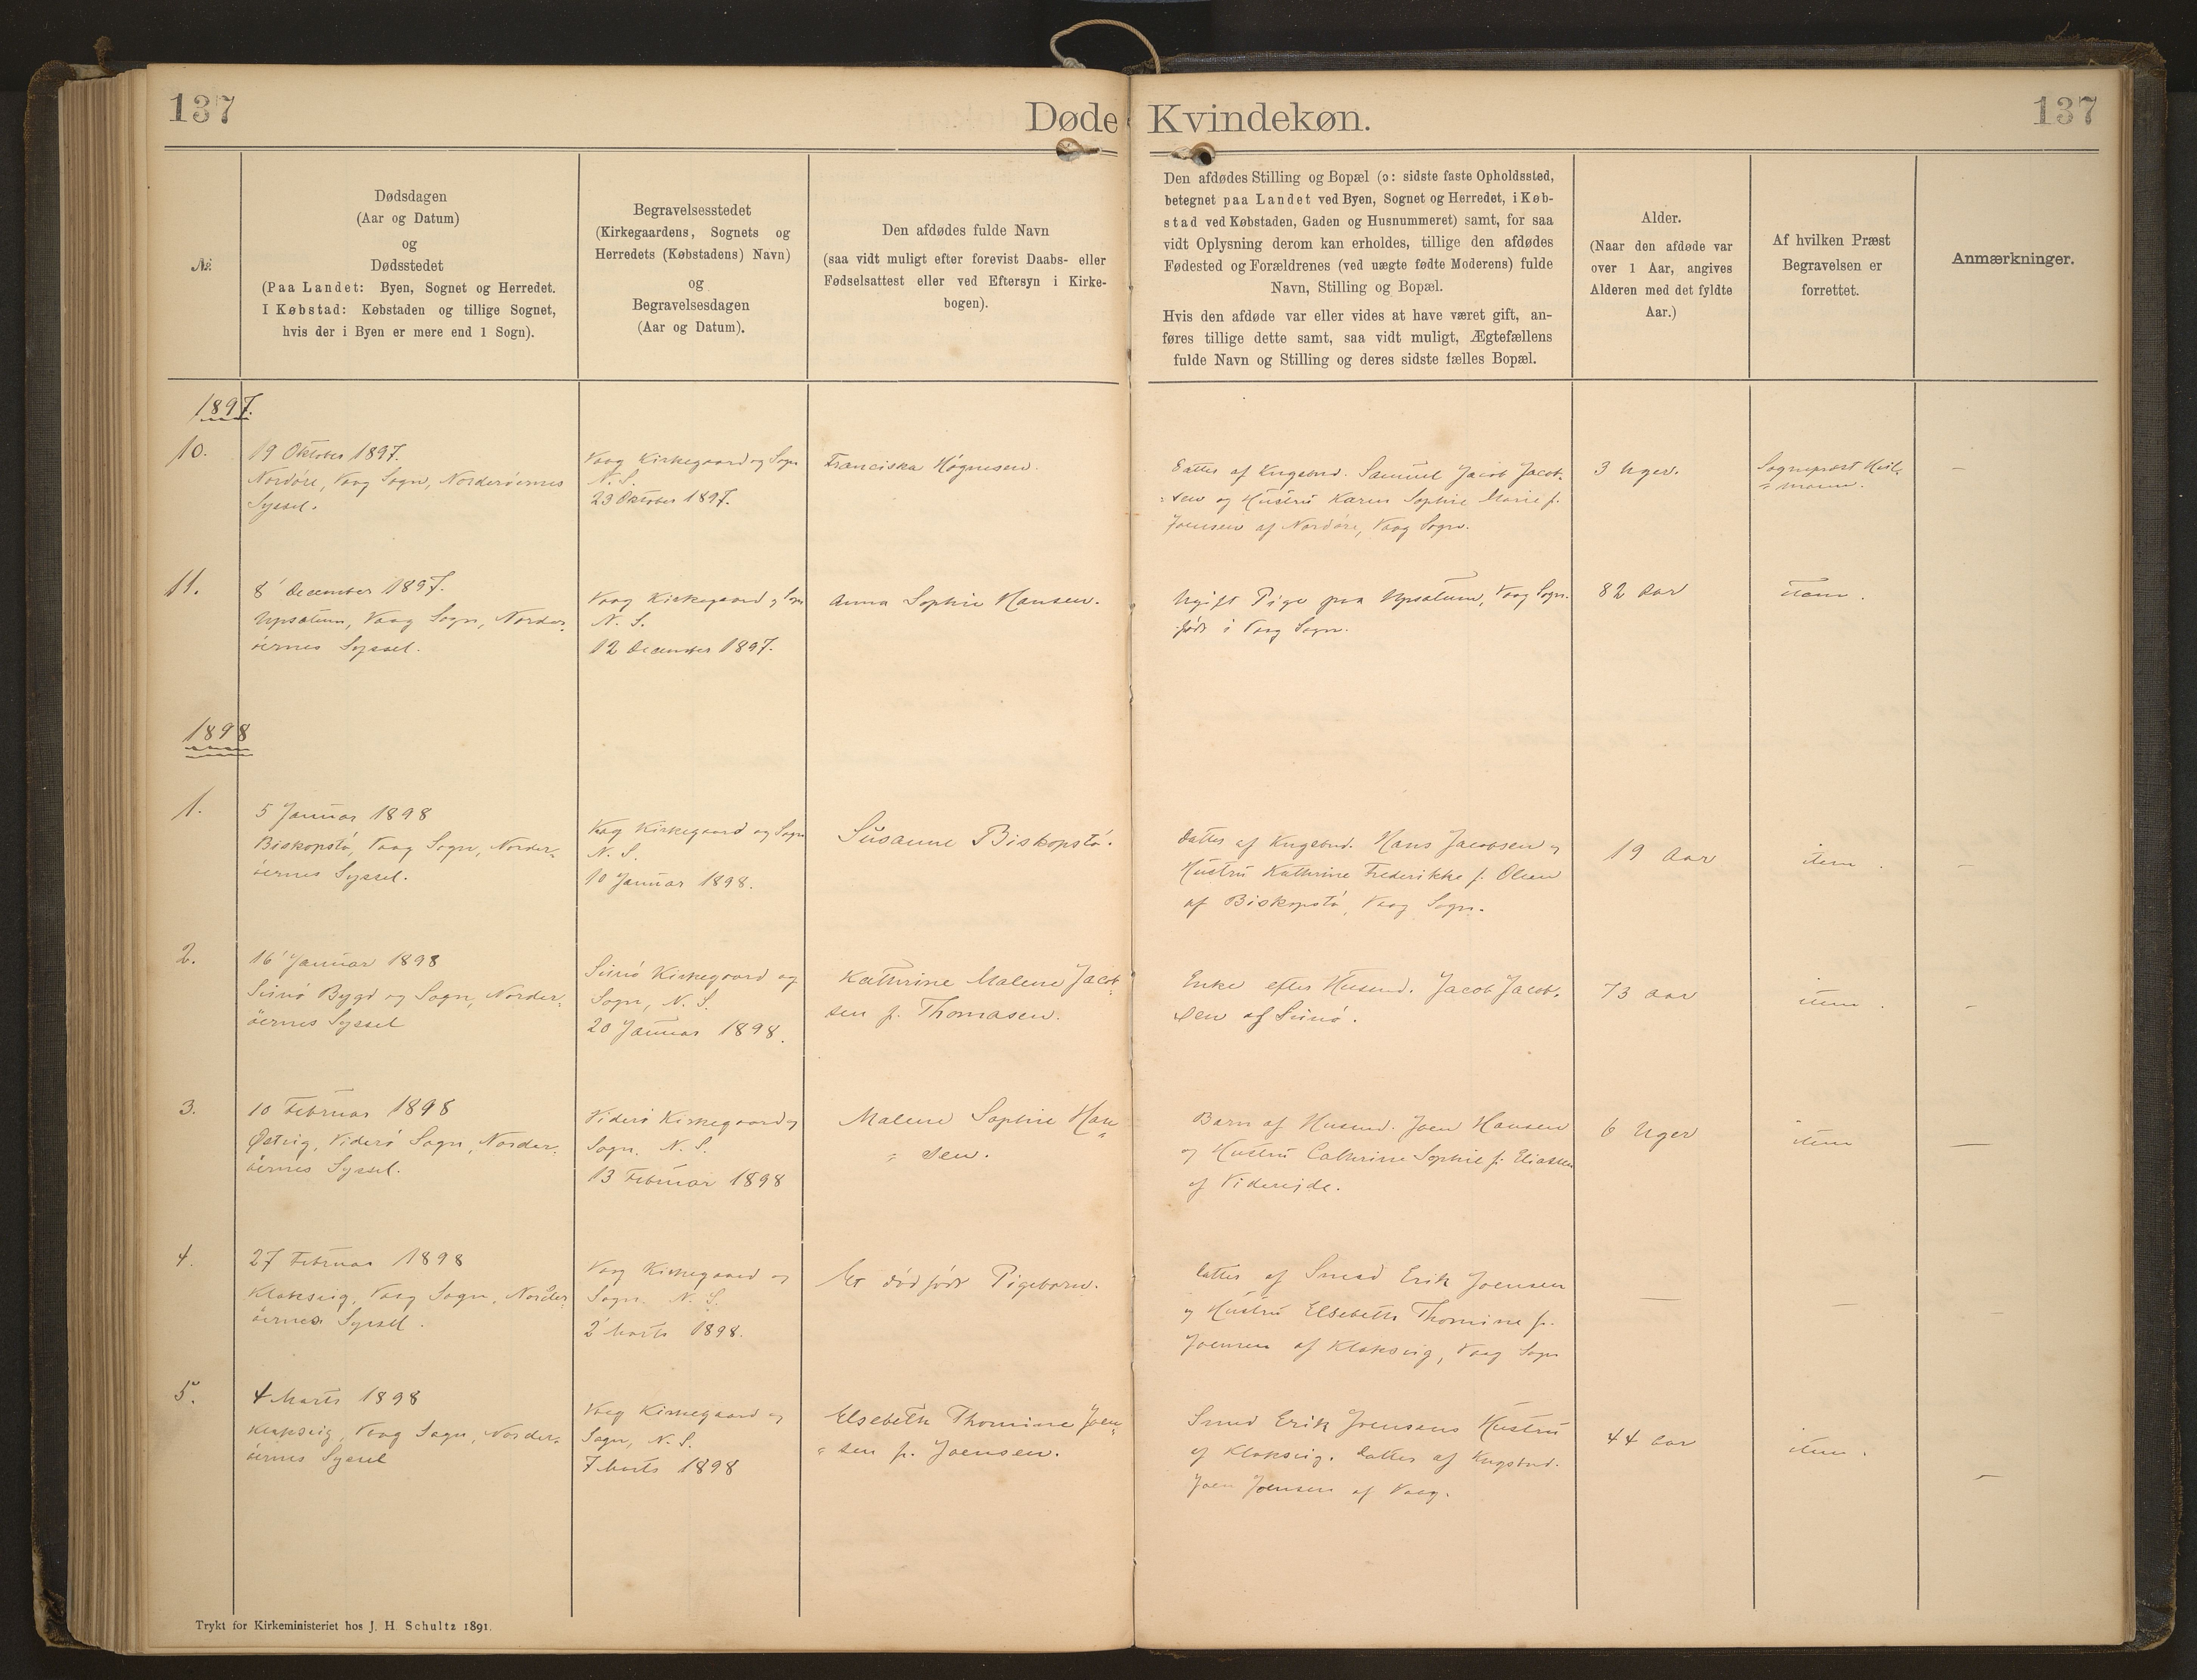 137
Døde Kvindekøn.
137
№
Dødsdagen
(Aar og Datum)
og
Dødsstedet
(Paa Landet: Byen, Sognet og Herredet.
I Købstad: Købstaden og tillige Sognet,
hvis der i Byen er mere end 1 Sogn).
Begravelsesstedet
(Kirkegaardens, Sognets og
Herredets (Købstadens) Navn)
og
Begravelsesdagen
(Aar og Datum).
Den afdødes fulde Navn
(saa vidt muligt efter forevist Daabs- eller
Fødselsattest eller ved Eftersyn i Kirke-
bogen).
Den afdødes Stilling og Bopæl (ɔ: sidste faste Opholdssted,
betegnet paa Landet ved Byen, Sognet og Herredet, i Køb-
stad ved Købstaden, Gaden og Husnummeret) samt, for saa
vidt Oplysning derom kan erholdes, tillige den afdødes
Fødested og Forældrenes (ved uægte fødte Moderens) fulde
Navn, Stilling og Bopæl.
Hvis den afdøde var eller vides at have været gift, an-
føres tillige dette samt, saa vidt muligt, Ægtefællens
fulde Navn og Stilling og deres sidste fælles Bopæl.
Alder.
(Naar den afdøde var
over 1 Aar, angives
Alderen med det fyldte
Aar.)
Af hvilken Præst
Begravelsen er
forrettet.
Anmærkninger.
1897.
10.
19 Oktober 1897.
Nordöre, Vaag Sogn, Norderöernes
Syssel.
Vaag Kirkegaard og Sogn
N. S.
23 Oktober 1897.
Franciska Høgnesen.
Datter af Kngsbnd. Samuel Jacob Jacob-
sen og Hustru Karen Sophie Marie f.
Joensen af Nordöre, Vaag Sogn.
3 Uger.
Sognepræst
–
11.
8 December 1897.
Upsalum, Vaag Sogn, Norder-
öernes Syssel.
Vaag Kirkegaard og Sogn
N. S.
12 December 1897.
Anna Sophie Hansen.
Ugift Pige paa Upsalum, Vaag Sogn.
född i Vaag Sogn.
82 Aar
item.
1898
1.
5 Januar 1898
Biskopstö, Vaag Sogn, Norder-
öernes Syssel.
Vaag Kirkegaard og Sogn
N. S.
10 Januar 1898.
Susanne Biskopstö.
Datter af Kngsbnd. Hans Jacobsen og
Hustru Kathrine Frederikke f. Olsen
af Biskopstö, Vaag Sogn.
19 Aar
item.
–
2.
16 Januar 1898
Svinö Bygd og Sogn, Norder-
öernes Syssel
Svinö Kirkegaard og
Sogn, N. S.
20 Januar 1898.
Kathrine Malene Jacob-
sen f. Thomasen.
Enke efter Husmd. Jacob Jacob-
sen af Svinö.
73 Aar
item.
–
3.
10 Februar 1898
Østvig, Viderö Sogn, Norder-
öernes Syssel.
Viderö Kirkegaard og
Sogn. N. S.
13 Februar 1898
Malene Sophie Han-
sen.
Barn af Husmd. Joen Hansen
og Hustru Cathrine Sophie f. Eliassen
af Videreide.
6 Uger
item
–
4.
27 Februar 1898
Klaksvig, Vaag Sogn, Norder-
öernes Syssel.
Vaag Kirkegaard og
Sogn. N. S.
2 Marts 1898.
Et dödfödt Pigebarn.
Datter af Smed Erik Joensen
og Hustru Elsebeth Thomine f.
Joensen af Klaksvig, Vaag Sogn
–
–
–
5.
4 Marts 1898
Klaksvig, Vaag Sogn, Norder-
öernes Syssel
Vaag Kirkegaard og
Sogn, N. S.
7 Marts 1898
Elsebeth Thomine Joen-
sen f. Joensen.
Smed Erik Joensens Hustru
af Klaksvig. Datter af Kngsbnd.
Joen Joensen af Vaag.
44 Aar
item.
–
Trykt for Kirkeministeriet hos J. H. Schultz 1891.